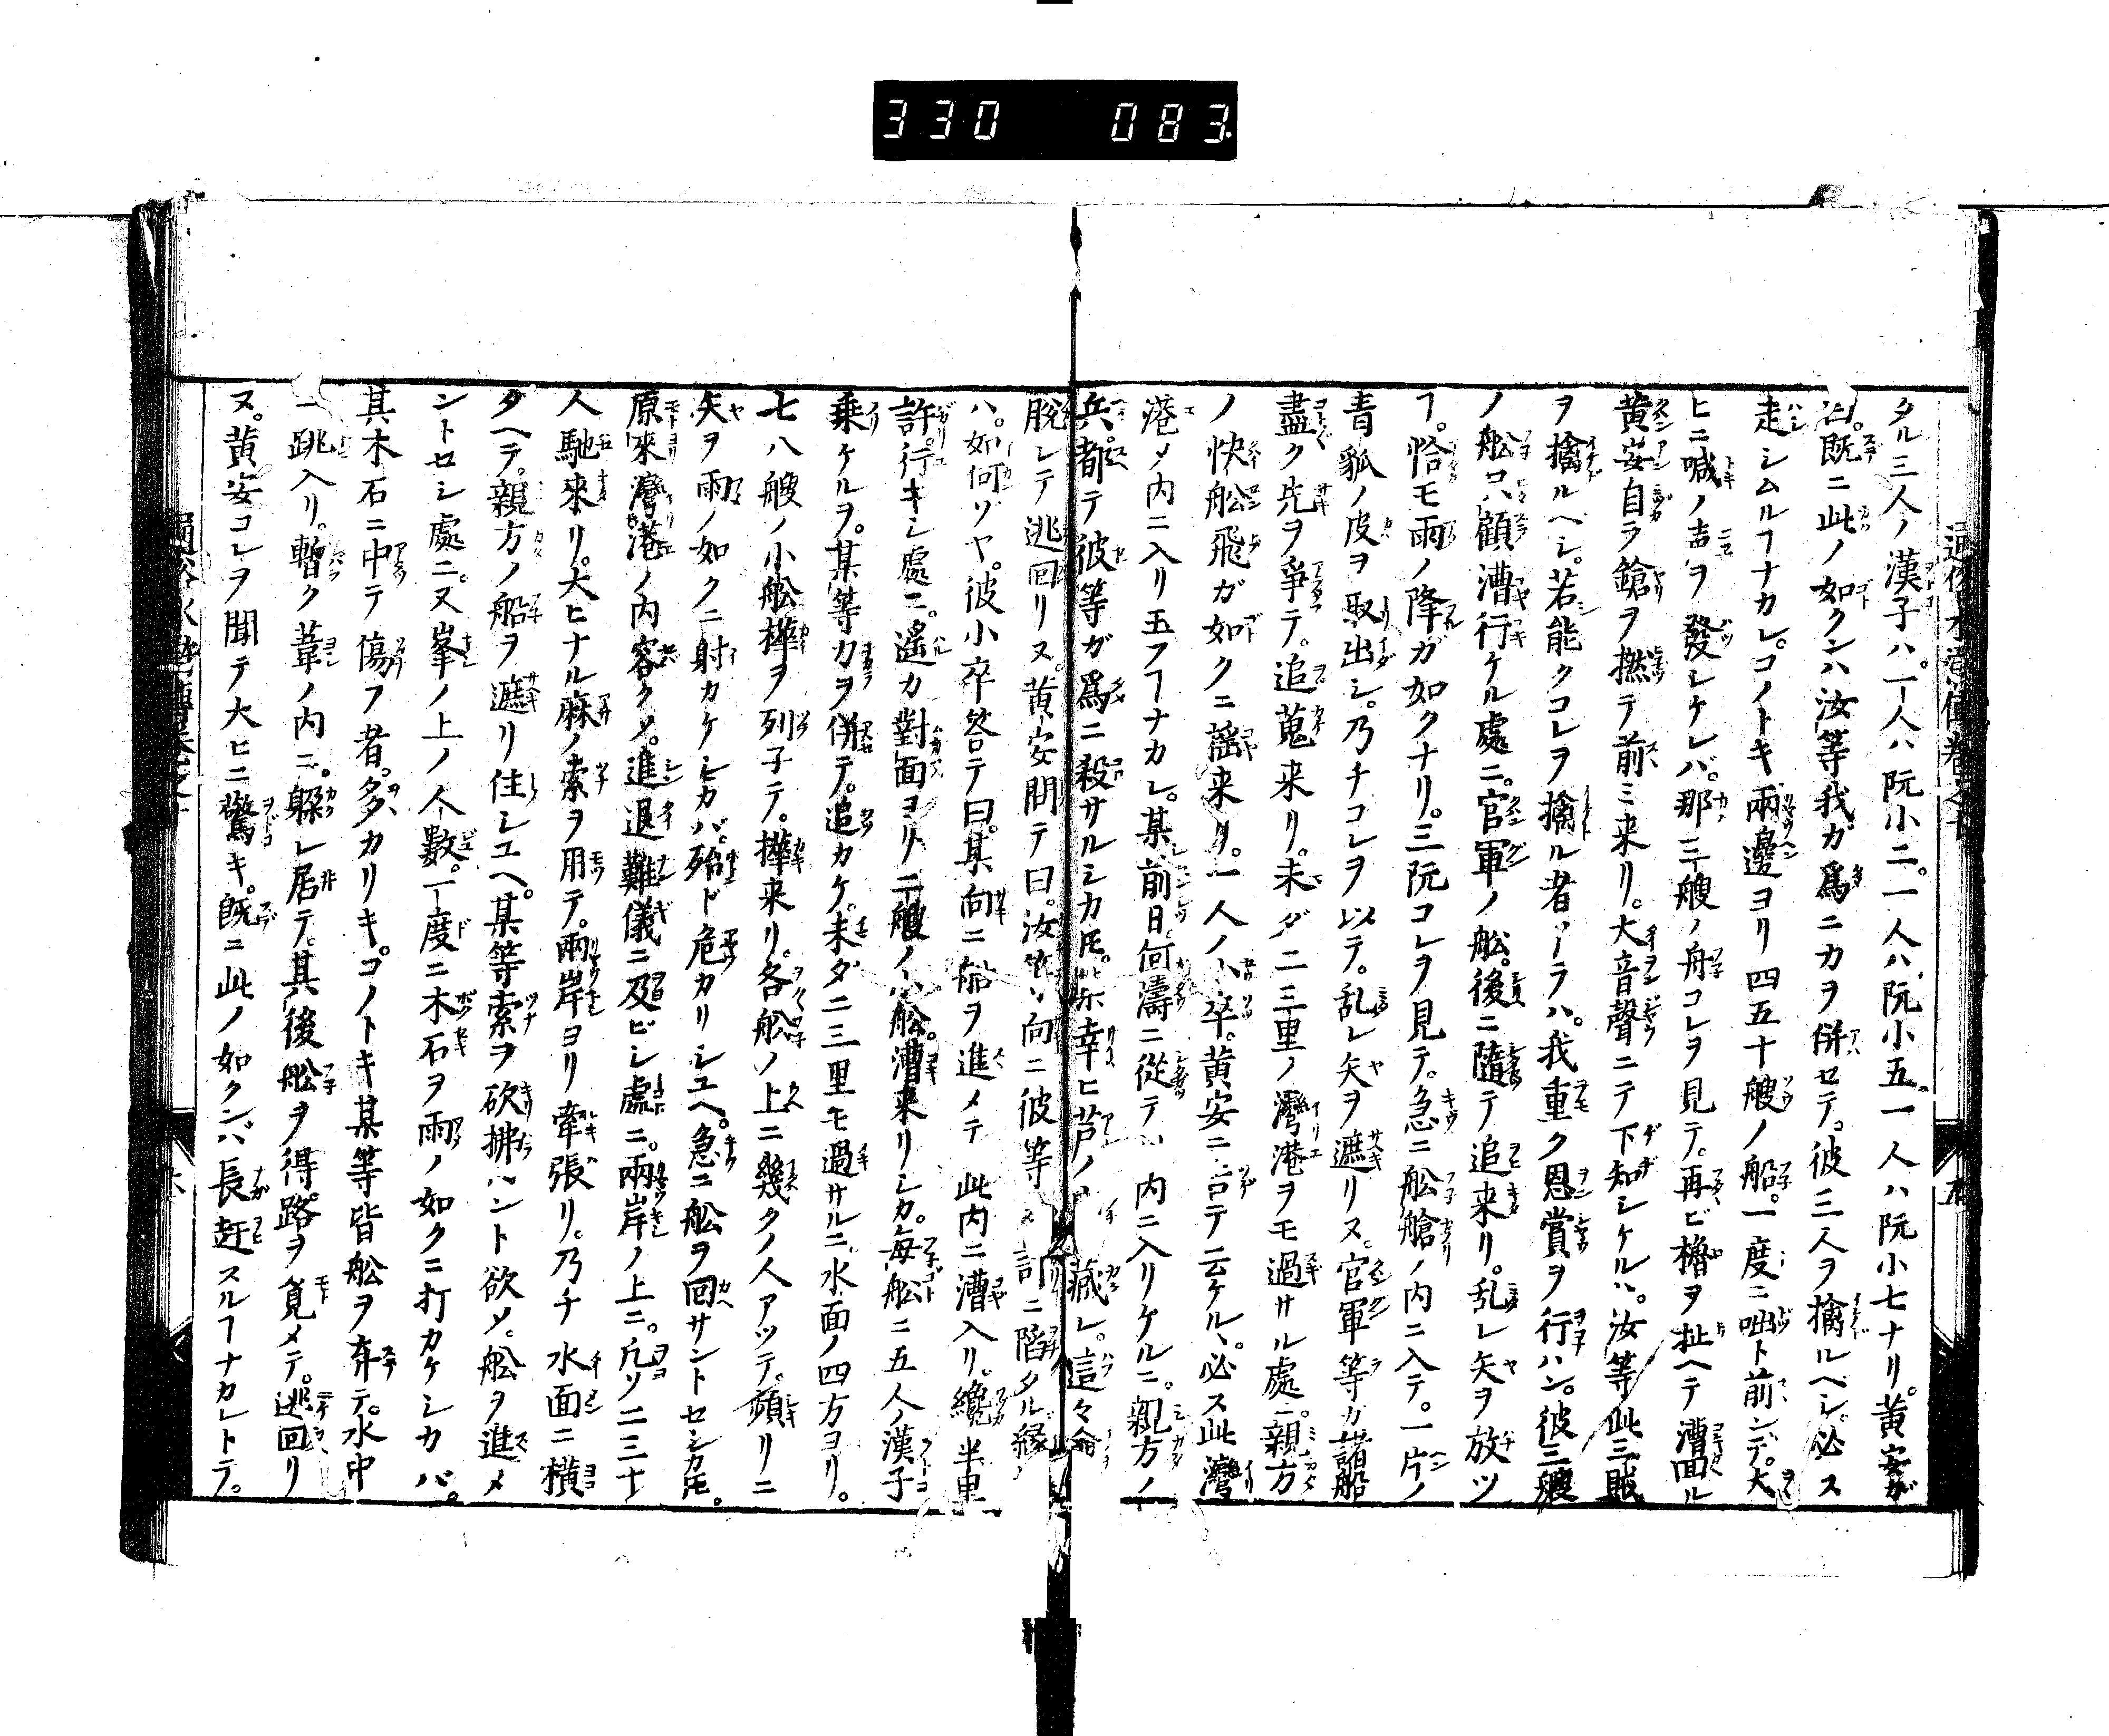 330 083
タル三人ノ漢子ハ。一人ハ阮小二。一人ハ阮小五。一人ハ阮小七ナリ。黄安ガ
曰。既ニ此ノ如クンハ汝等我ガ爲ニ力ヲ併セテ。彼三人ヲ擒ルヘシ。必ス
走シムルヿナカレ。コノトキ兩邊ヨリ四五十艘ノ船。一度ニ咄ト前ンデ。大
ヒニ喊ノ声ヲ發シケレバ。那三艘ノ舟コレヲ見テ。再ビ櫓ヲ扯ヘテ漕回ル
黄安自ラ鎗ヲ撚テ前ミ来リ。大音聲ニテ下知シケルハ。汝等此三賊
ヲ擒ルヘシ。若能クコレヲ擒ル者アラハ。我重ク恩賞ヲ行ハン。彼三艘
ノ舩只顧漕行ケル處ニ。官軍ノ舩。後ニ隨テ追来リ。乱レ矢ヲ放ツ
ヿ。恰モ雨ノ降ガ如クナリ。三阮コレヲ見テ。急ニ舩艙ノ内ニ入テ。一片ノ
青狐ノ皮ヲ取出シ。乃チコレヲ以テ。乱レ矢ヲ遮リヌ。官軍等カ諸船
盡ク先ヲ爭テ。追蒐来リ。未ダ二三里ノ灣港ヲモ過サル處ニ。親方
ノ快舩飛ガ如クニ搖来タ。一人ノ小卒。黄安ニ告テ云ケルハ。必ス此灣
港メ内ニ入リ玉フヿナカレ。某前日。何濤ニ從テ 内ニ入リケルニ。親方ノ
兵。都テ彼等ガ爲ニ殺サルシカ𪜈。某幸ヒ芦ノ 藏レ。這々命
脱レテ逃回リヌ。黄安問テ曰。汝等向ニ彼等 計ニ陷タル縁ノ
ハ。如何ゾヤ。彼小卒答テ曰。某向ニ船ヲ進メテ 此内ニ漕入リ。纔半里
許。行キシ處ニ。遙カ對面ヨリ。二艘ノ小舩。漕来リシカ。毎舩ニ五人ノ漢子
乗ケルヲ。某等力ヲ併テ。追カケ。未ダ二三里モ過サルニ。水面ノ四方ヨリ。
七八艘ノ小舩櫂ヲ列子テ。櫂来リ。各舩ノ上ニ幾クノ人アツテ。頻リニ
矢ヲ雨ノ如クニ射カケシカバ。殆ド危カリシユヘ。急ニ舩ヲ回サントセシカ𪜈。
原來灣港ノ内窄クメ。進退難儀ニ及ビシ處ニ。兩岸ノ上ニ。凡ソ二三十
人馳來リ。大ヒナル麻ノ索ヲ用テ。兩岸ヨリ牽張リ。乃チ水面ニ横
タヘテ。親方ノ船ヲ遮リ住シユヘ。某等索ヲ砍拂ハント欲メ。舩ヲ進メ
ントセシ處ニ。又峯ノ上ノ人數。一度ニ木石ヲ雨ノ如クニ打カケシカバ。
其木石ニ中テ傷フ者。多カリキ。コノトキ某等皆舩ヲ弃テ。水中
ニ跳入リ。暫ク葦ノ内ニ。躱レ居テ。其後舩ヲ得。路ヲ覓メテ。逃回リ
ヌ。黄安コレヲ聞テ大ヒニ驚キ。既ニ此ノ如クンバ長赶スルヿナカレトテ。